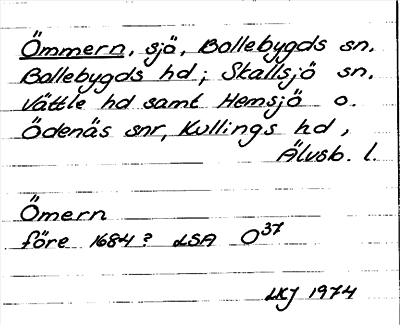 Ömmern, sjö, Bollebygds sn.
Bollebygds hd; Skallsjö sn.
Vättle hd samt Hemsjö o.
Ödenäs snr, Kullings hd,
Älvsb. l.
Ömern
före 1684? LSA O³⁷
LKJ 1974